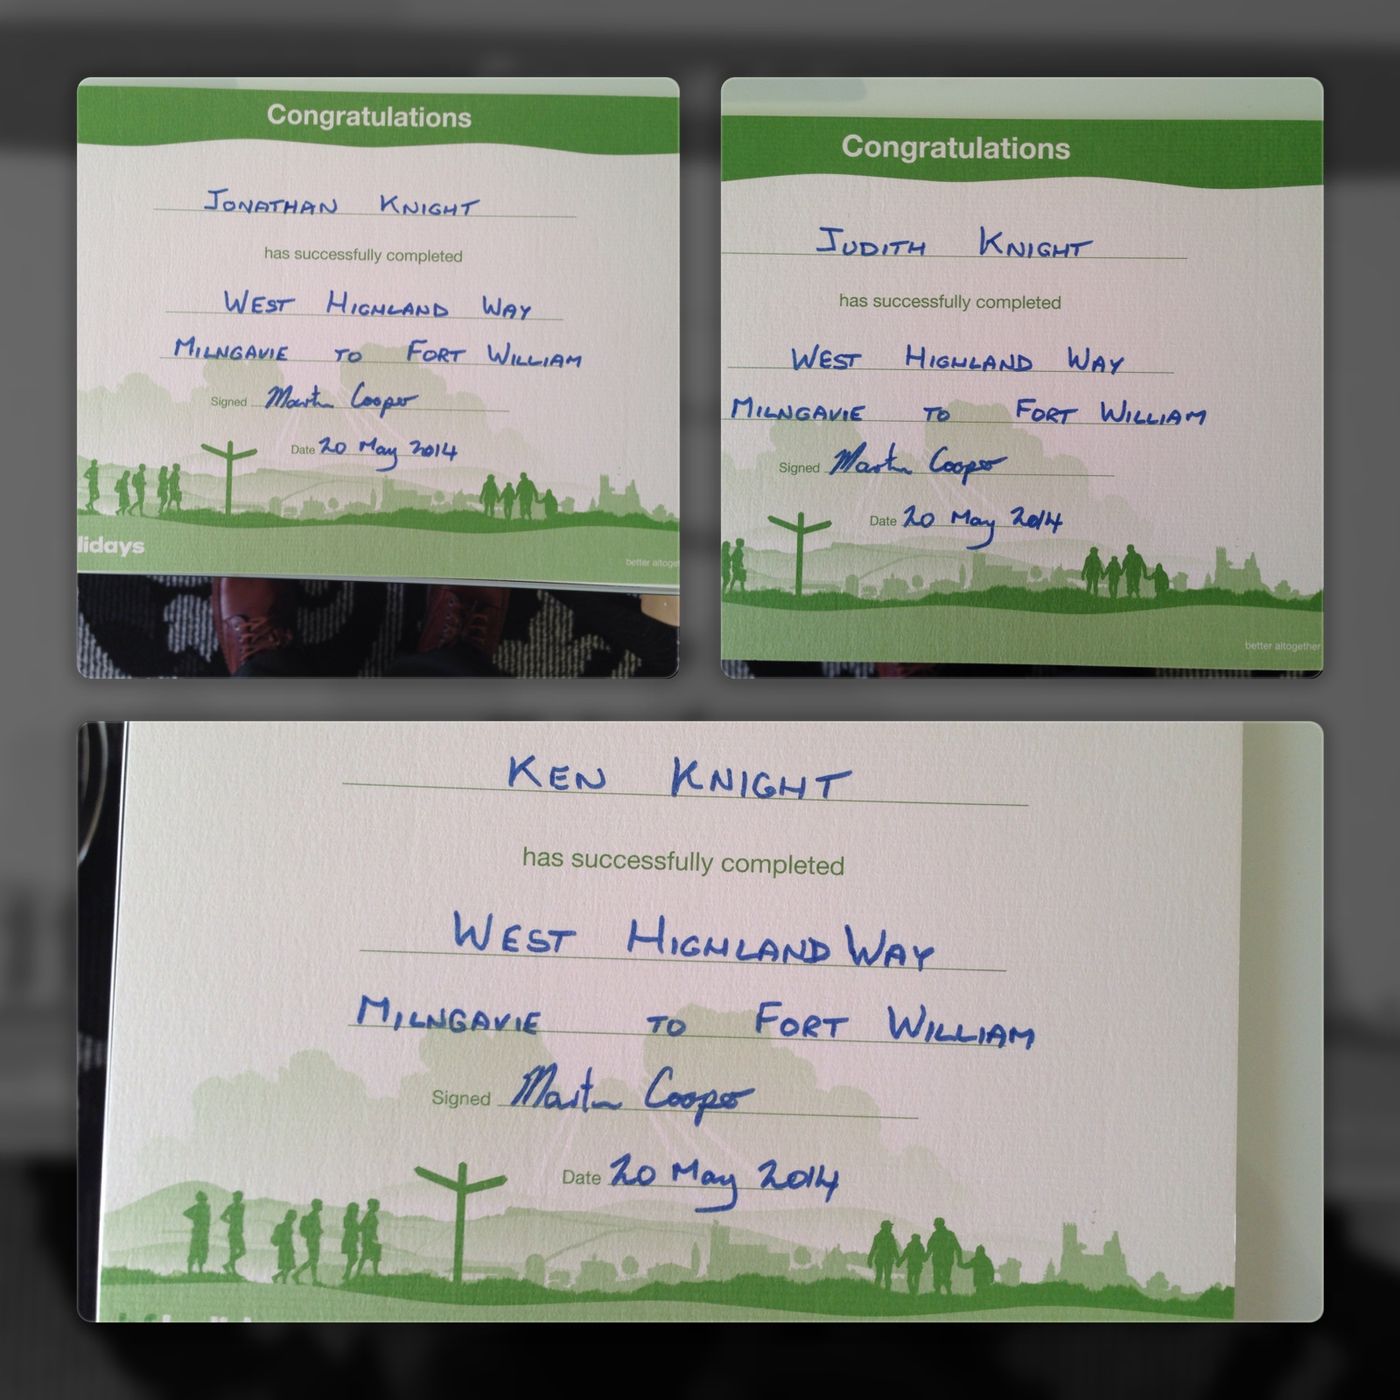 Congratulations
JONATHAN KNIGHT
has successfully completed
WEST HIGHLAND WAY
MILNGAVIE TO FORT WILLIAM
Signed Martin Cooper
Date 20 May 2014
lidays
better altoge
Congratulations
JUDITH KNIGHT
has successfully completed
WEST HIGHLAND WAY
MILNGAVIE TO FORT WILLIAM
Signed Martin Cooper
Date 20 May 2014
better altogether
KEN KNIGHT
has successfully completed
WEST HIGHLAND WAY
MILNGAVIE TO FORT WILLIAM
Signed Martin Cooper
Date 20 May 2014